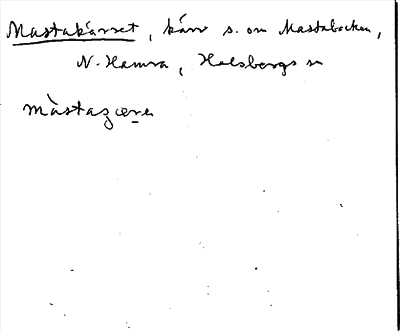 Mastakärret, kärr s. om Mastabacken,
N. Hamra, Halsbergs sn
màstaʒære